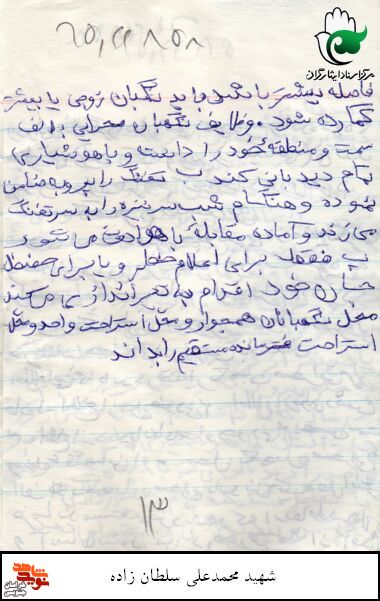 ۲۵٫۲۲۸۵۸
مرکز اسناد ایثارگران
فاصله بیشتر باشد باید نگهبان زوجی یا بیشتر
گمارده شود. وظایف نگهبان صحرایی: الف
سمت و منطقه خود را دانسته و با هوشیاری
تمام دیدبانی کند ب تفنگ را پر و به ضامن
نموده و هنگام شب سر نیزه را به سر تفنگ
می زند و آماده مقابله با هر می شود
پ فقط برای اعلام خطر و یا برای حفظ
جان خود اقدام به تیراندازی می کند
محل نگهبانان همجوار و محل استراحت واحد و محل
استراحت فرمانده مستقیم را بداند
۱۳
شهید محمدعلی سلطان زاده